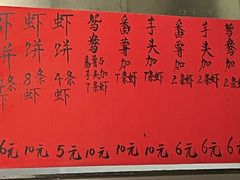 虾饼 条虾 6元
虾饼 8条虾 10元
虾饼 4条虾 5元
鸳鸯 番薯与芋头加7条虾 10元
番薯加7条虾 10元
芋头加7条虾 10元
鸳鸯加2条虾 6元
番薯加2条虾 6元
芋头加2条虾 6元